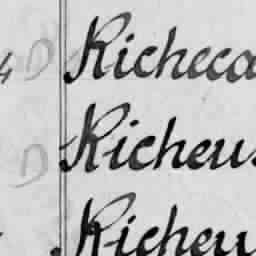 4 D Richeca
D Richeus
Richeu